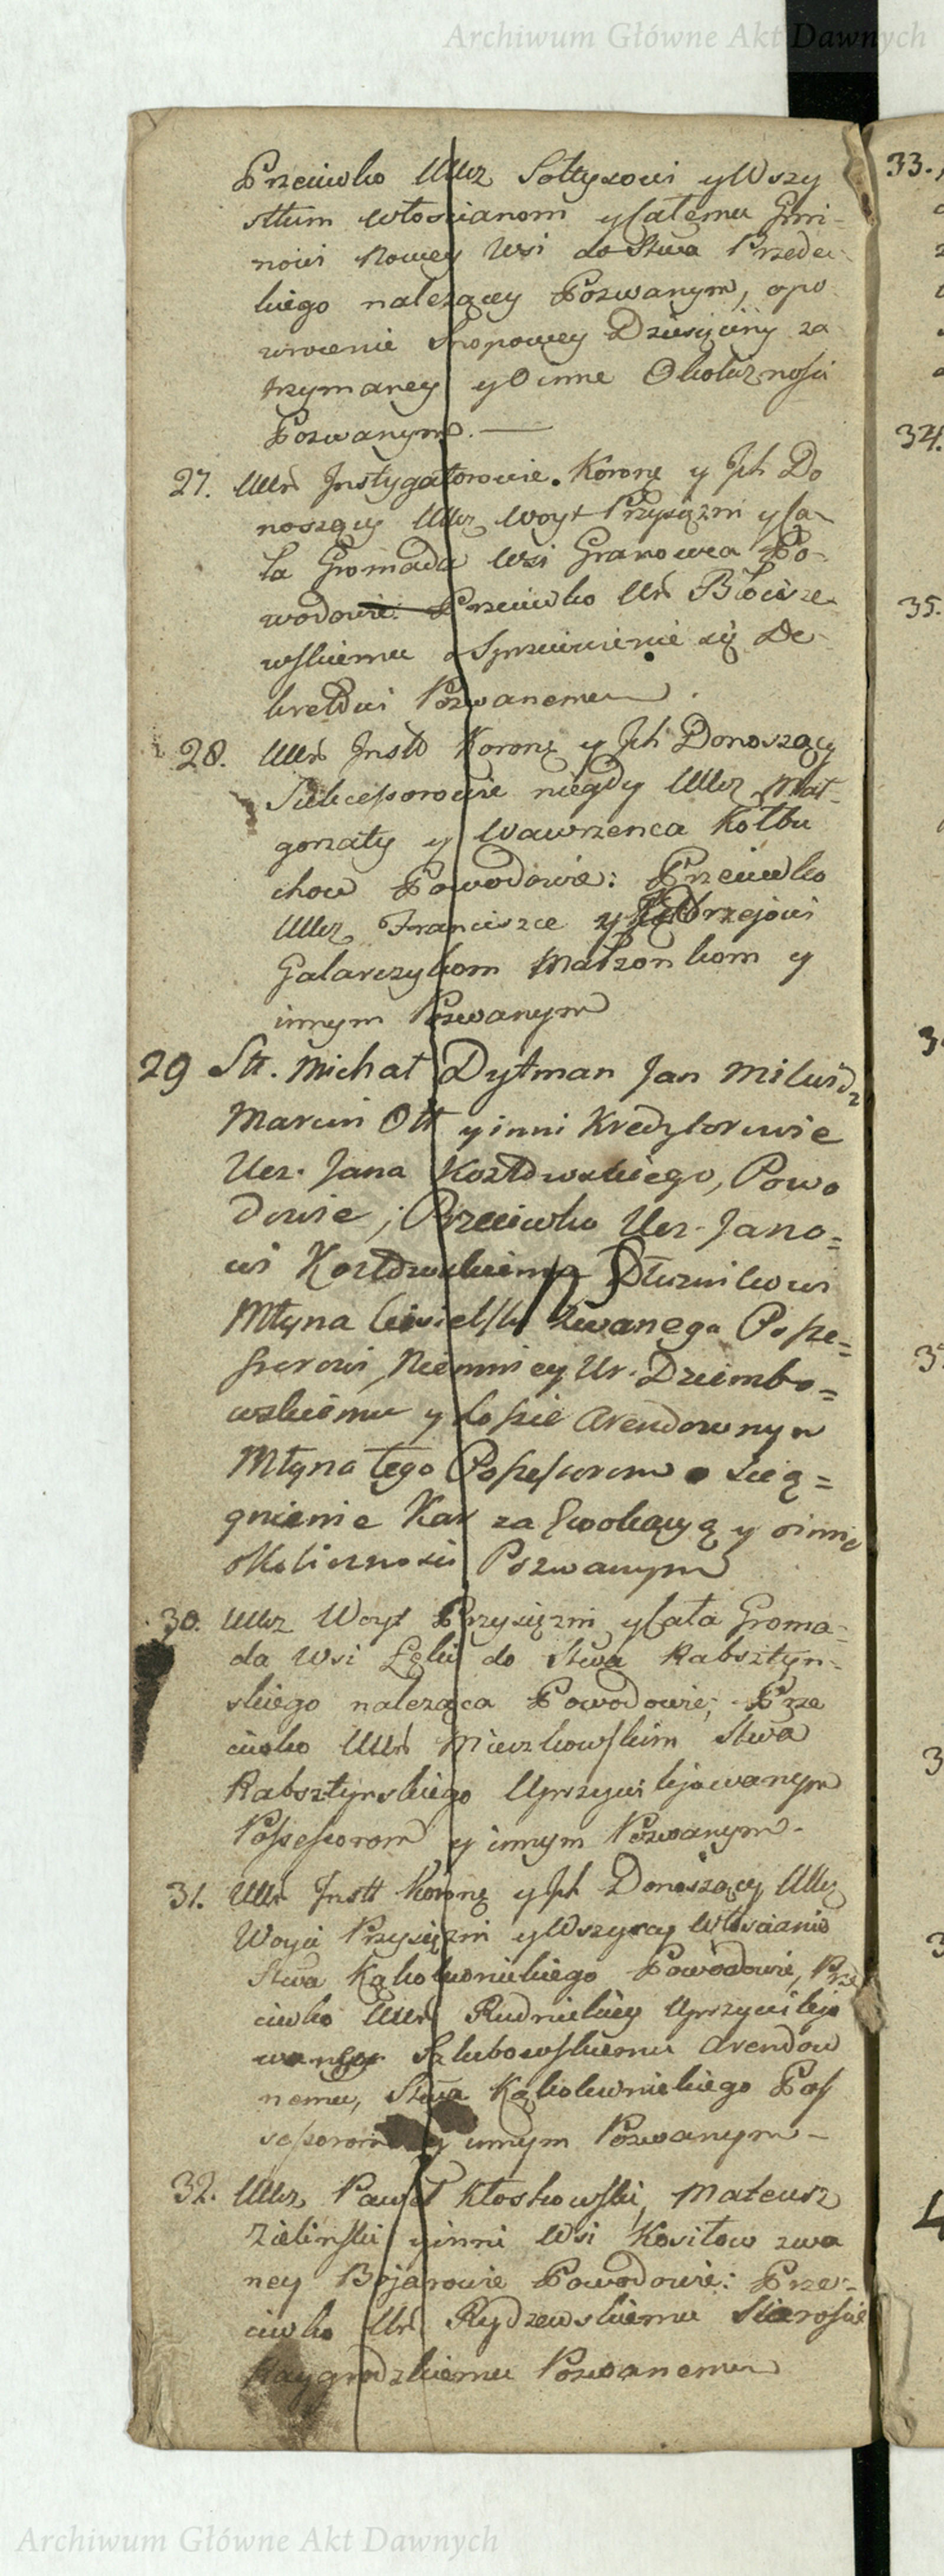 Archiwum Główne Akt Dawnych
Przeciwko UUcz Sołtysowi y Wszy
stkim Włościanom y całemu Gmi-
nowi Nowey Wsi do Stwa Przede-
kiego należącey Pozwanym, o po
wrocenie Snopowey Dziesięciny za
trzymaney y O inne Okoliczności
Pozwanym.
27. UUrd Instygatorowie Koronę y Jch Do
noszący UUcz Woyt Przysiężni y ca-
ła Gromada Wsi Granowca Po-
wodowie Przeciwko Urd Błocisze-
wskiemu o Sprzeciwienie się De-
kretowi Pozwanemu.
28. UUrd Instt Koronę y Jch Donoszący
Sukcessorowie niegdy UUcz Mał-
gorzaty y Wawrzenca Kołbu
chow Powodowie: Przeciwko
UUcz Franciszce y Jędrzejowi
Galarczykom Małzonkom y
innym Pozwanym
29 Stt. Michał Dytman Jan
Marcin Ott y inni Kredytorowie
Ucz. Jana Kozłowskiego, Powo
dowie; Przeciwko Ucz. Jano=
wi Kozłowskiemu Dłuznikowi
Młyna zwanego Posse=
ssorowi, Niemniey Ur. Dziembo=
wskiemu y Arendownym
Młyna tego Possessorom o scią=
gnienie Kar za Ewokacyą y o inne
okoliczności Pozwanym
30. UUcz Woyt Przysiężni y cała Groma-
da Wsi Łęki do Stwa Rabsztyn-
skiego należąca Powodowie; Prze
ciwko UUrd Mieszkowskim Stwa
Rabsztynskiego Uprzywilejowanym
Possessorom y innym Pozwanym-
31. UUrd Instt Koronę y Jch Donoszący UUcz
Woyci Przysiężni y Wszyscy Włościanie
Stwa Kąkolewnickiego Powodowie, Prze
ciwko UUrd Rudnickiey Uprzywilejo
waney Szlubowskiemu Arendow
nemu, Stwa Kąkolewnickiego Pos
sessorom y innym Pozwanym-
32. UUcz Paweł Kłoskowski, Mateusz
Zielinski y inni Wsi Kosiłow zwa
ney Bojarowie Powodowie: Prze-
ciwko Urd Rydzewskiemu Staroscie
Raygrodzkiemu Pozwanemu
33.
34.
35.
Archiwum Główne Akt Dawnych